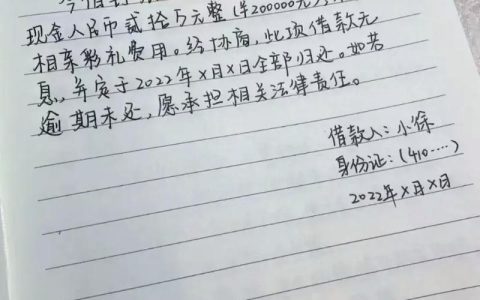 今借到
现金人民币贰拾万元整(¥200000元)
相亲彩礼费用。经协商,此项借款无
息,并定于2022年X月X日全部归还。如若
逾期未还,愿承担相关法律责任。
借款人:小徐
身份证:(410....)
2022年X月X日